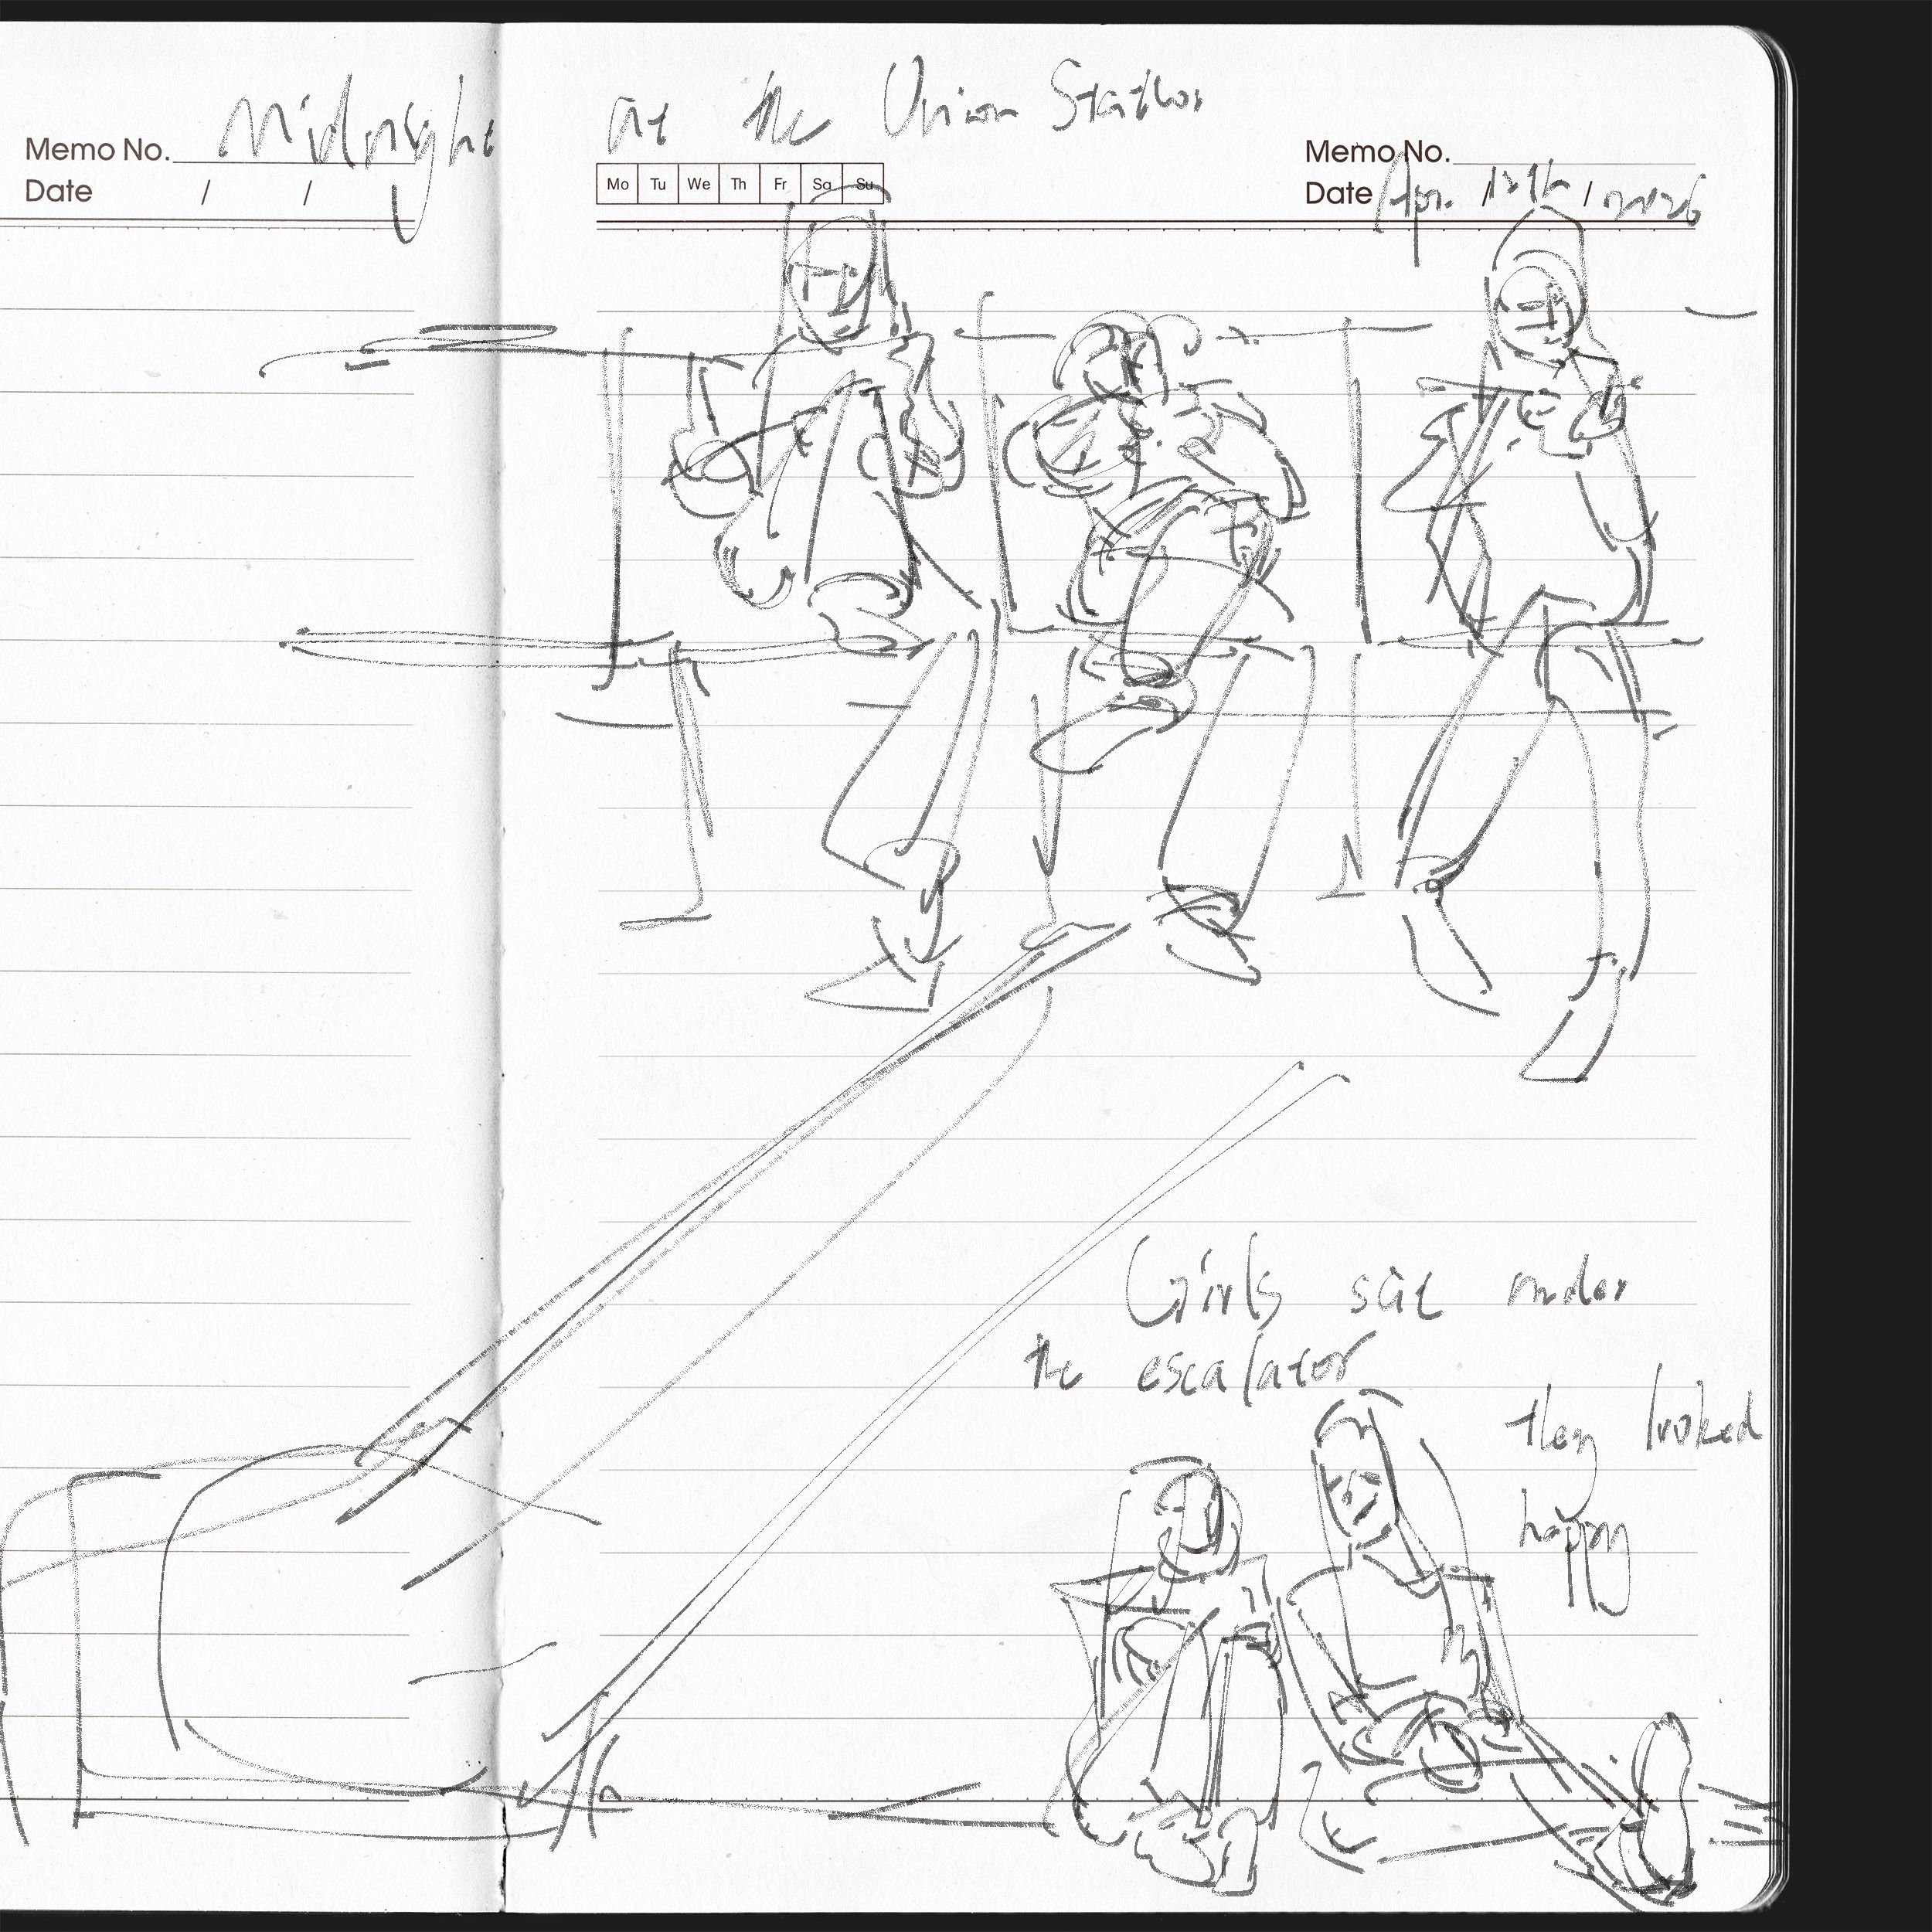 Midnight at the Union Station
Memo No.
Date / /
Mo Tu We Th Fr Sa Su
Memo No.
Date Apr. / 12th / 2026
Girls sit under
the escalator
they looked
happy